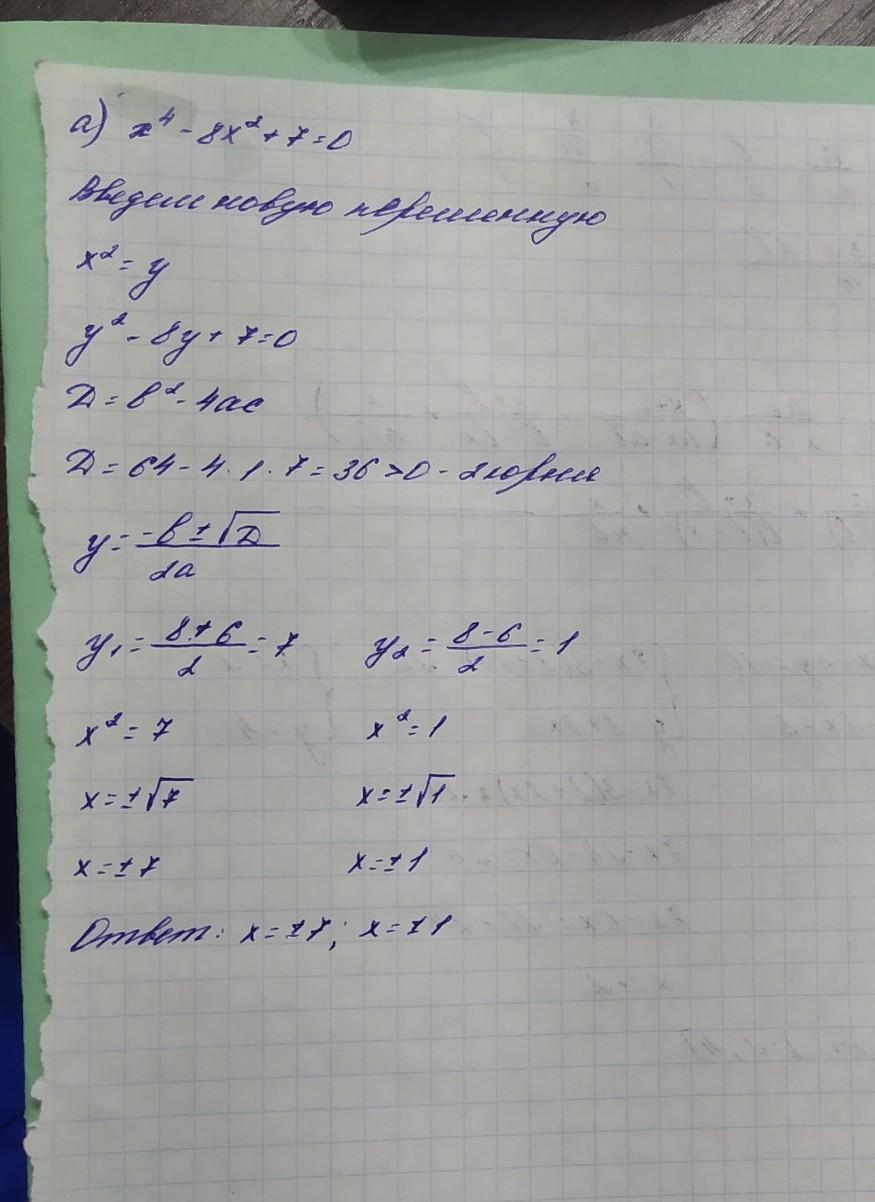 а) x⁴ - 8x² + 7 = 0
Введем новую переменную
x² = y
y² - 8y + 7 = 0
D = b² - 4ac
D = 64 - 4 · 1 · 7 = 36 > 0 - 2 корня
y = (-b ± √D) / 2a
y₁ = (8 + 6) / 2 = 7   y₂ = (8 - 6) / 2 = 1
x² = 7   x² = 1
x = ±√7   x = ±√1
x = ±7   x = ±1
Ответ: x = ±7; x = ±1